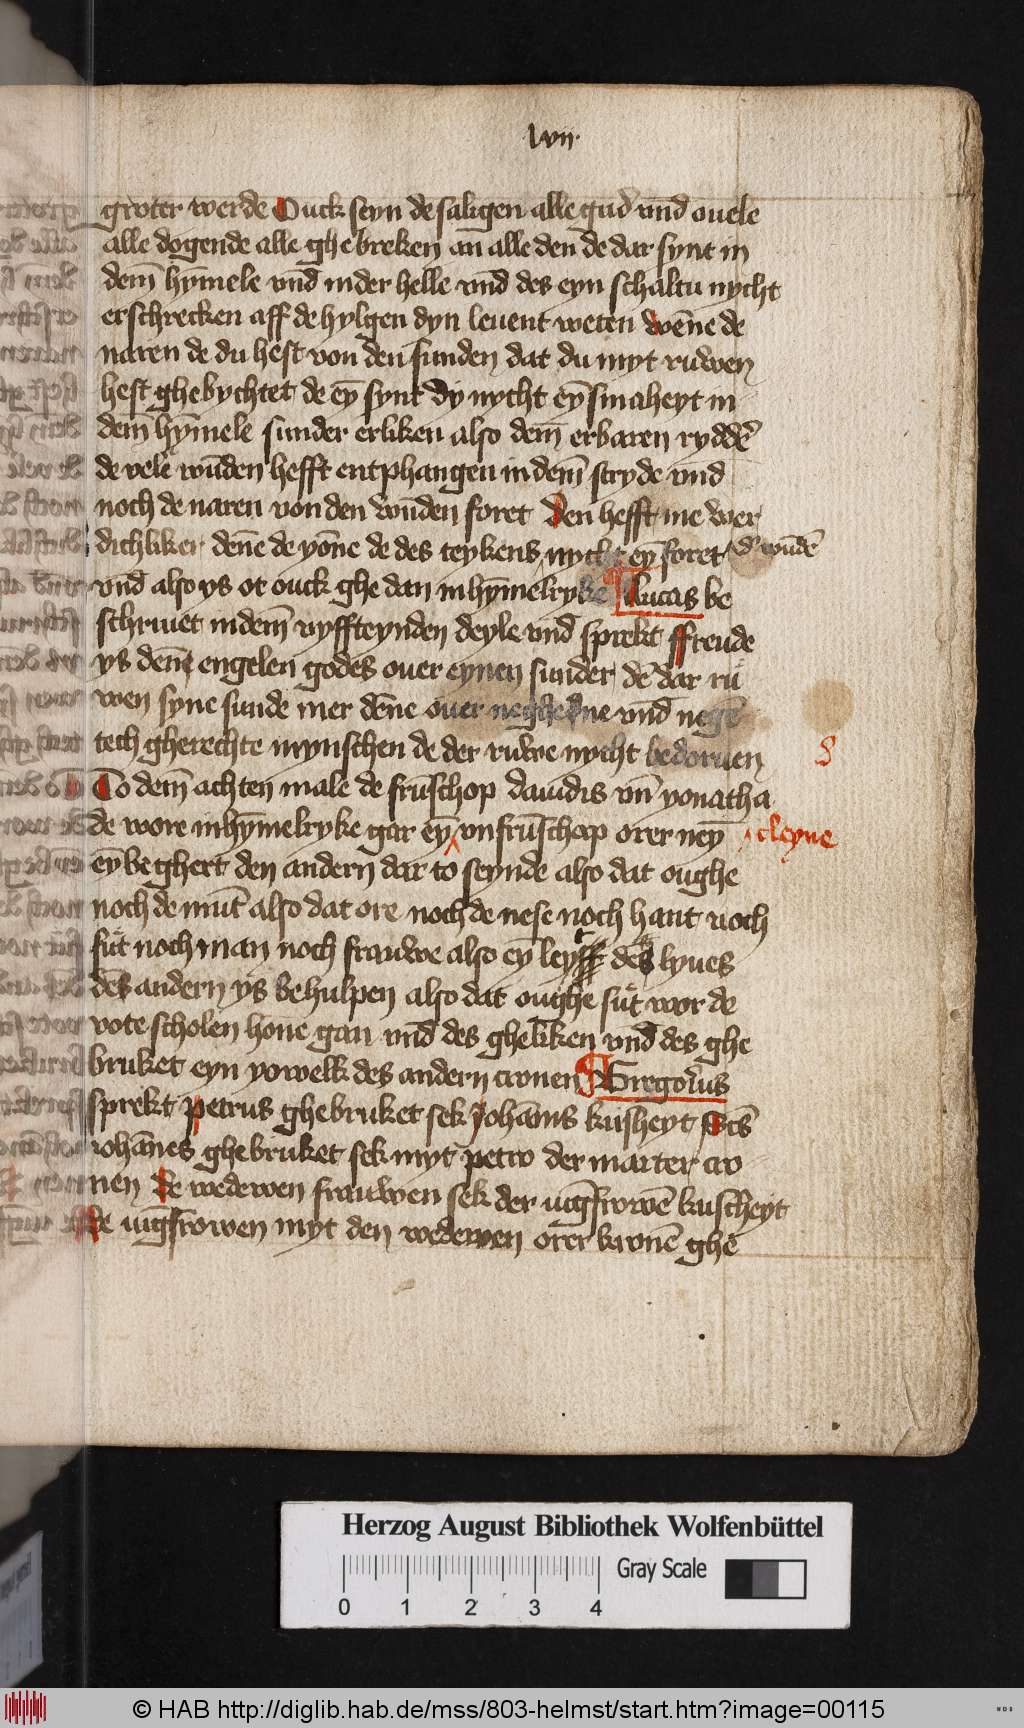 lvii.
groter werde Ouck seyn de saligen alle gud vnd ouele
alle dogende alle ghebreken an alle den de dar synt in
dem̄ hȳmele vnd̄ in der helle vnd̄ des eyn schaltu nycht
erschrecken aff de hylgen dyn leuent weten wēne de
naren de du hest von den sunden dat du myt ruwen
hest ghebychtet de eȳ synt dy nycht eȳ smaheyt in
dem hȳmele sunder erliken also dem̄ erbaren rydder̄
de vele wūden hefft entphangen in dem̄ stryde vnd
noch de naren von den wūden foret den hefft me wer
dichliker dēne de yōne de des teykens nycht eȳ foret d' wūdē
vnd̄ also ys ot ouck ghe dan in hȳmelryke Lucas be
schriuet in dem̄ vyffteynden deyle vnd̄ sprekt ffreude
ys dēne engelen godes ouer eynen sunder dē dar ru
wen syne sunde mer dēne ouer neghedne vnd̄ negē
tech gherechte mynschen de der ruwe nycht bedoruen
8
To dem̄ achten male de frūschop dauidis vn̄ yonatha
de wore in hȳmelryke gar eȳ vnfrūschop orer neȳ cleyne
eȳ beghert den andern dar to seynde also dat oughe
noch de mūt also dat ore noch de nese noch hant noch
fūt noch man noch frauwe also eȳ ley des lyues
dēs andern ys behulpen also dat oughe sūt vor de
vote scholen hōne gan vnd̄ des gheliken vnd̄ des ghe
bruket eyn yowelk des andern cronen Gregori9us
sprekt petrus ghebruket sek Johānis kusheyt Scs̄
iohānes ghebruket sek myt petro der marter cro
nen De wedewen frauwen sek der iūgfrowē kuscheyt
de iūgfrowen myt den wedewen orer kronē ghe
Herzog August Bibliothek Wolfenbüttel
Gray Scale
0 1 2 3 4
© HAB http://diglib.hab.de/mss/803-helmst/start.htm?image=00115